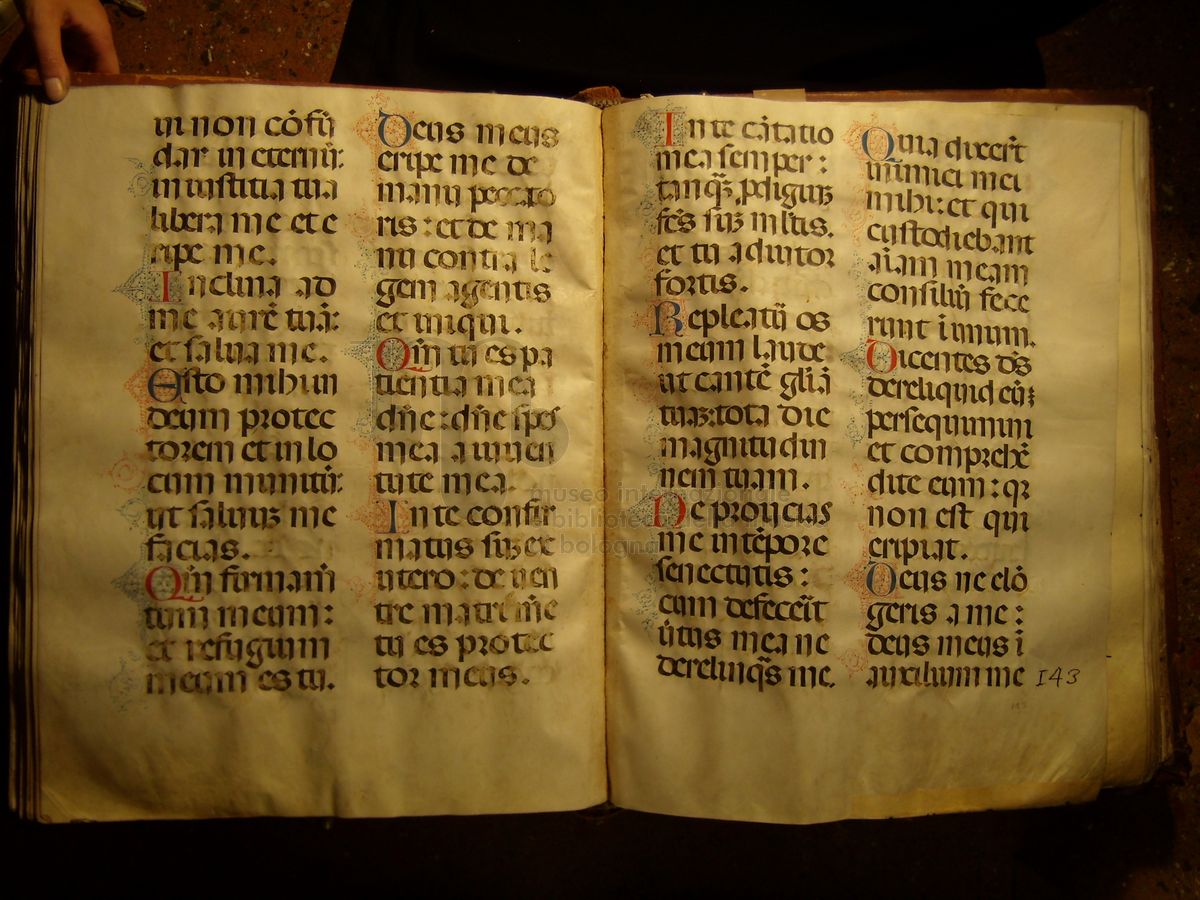 in non cōfū
dar in eternū:
in iustitia tua
libera me et e
ripe me.
Inclina ad
me aurē tuā:
et salua me.
Esto mihi in
deum protec
torem et in lo
cum munitū:
ut saluuꝫ me
facias.
Qm̄ firmam̄
tum meum:
et refugium
meum es tu.
Deus meus
eripe me de
manu peccato
ris: et de ma
nu contra le
gem agentis
et iniqui.
Qm̄ tu es pa
tientia mea
dn̄e: dn̄e spes
mea a iuuen
tute mea.
In te confir
matus suꝫ ex
utero: de uen
tre matris m̄e
tu es protec
tor meus.
In te cātatio
mea semper:
tanqꝫ pdigiuꝫ
fc̄s suꝫ ml̄tis.
et tu adiutor
fortis.
Repleatur os
meum laude
ut cantē gl̄iā
tuaꝫ: tota die
magnitudin
nem tuam.
Ne proijcias
me in tēpore
senectutis:
cum defecerīt
ūtus mea ne
derelinqs me.
Quia dixerūt
inimici mei
mihi: et qui
custodiebant
aīam meam
consiliū fece
runt ī unum.
Dicentes ds̄
dereliquid eū:
persequimini
et comprehē
dite eum: qr
non est qui
eripiat.
Deus ne elō
geris a me:
deus meus ī
auxilium me
143
museo internazionale
biblioteca della
bologna